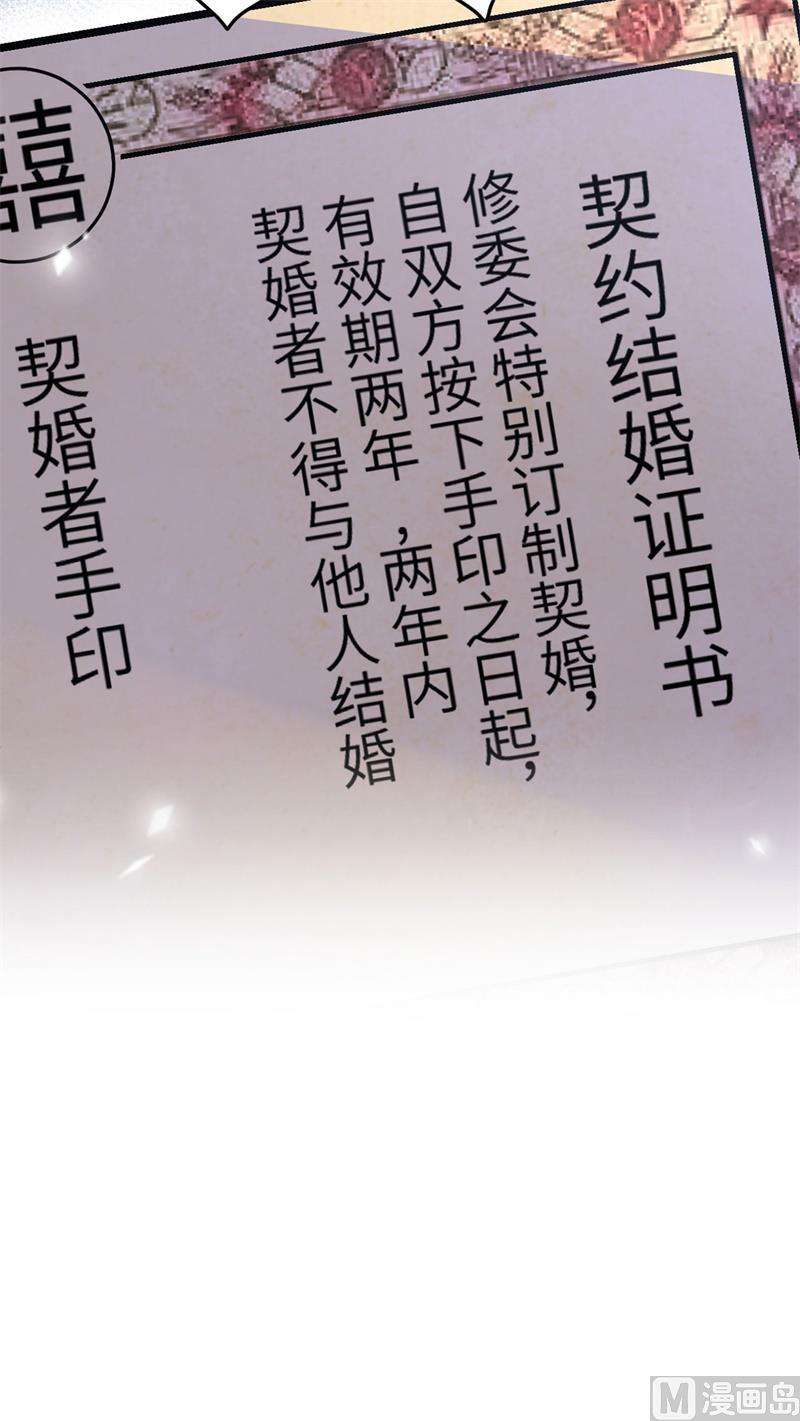 契约结婚证明书
修委会特别订制契婚，
自双方按下手印之日起，
有效期两年，两年内
契婚者不得与他人结婚
契婚者手印
囍
M漫画岛